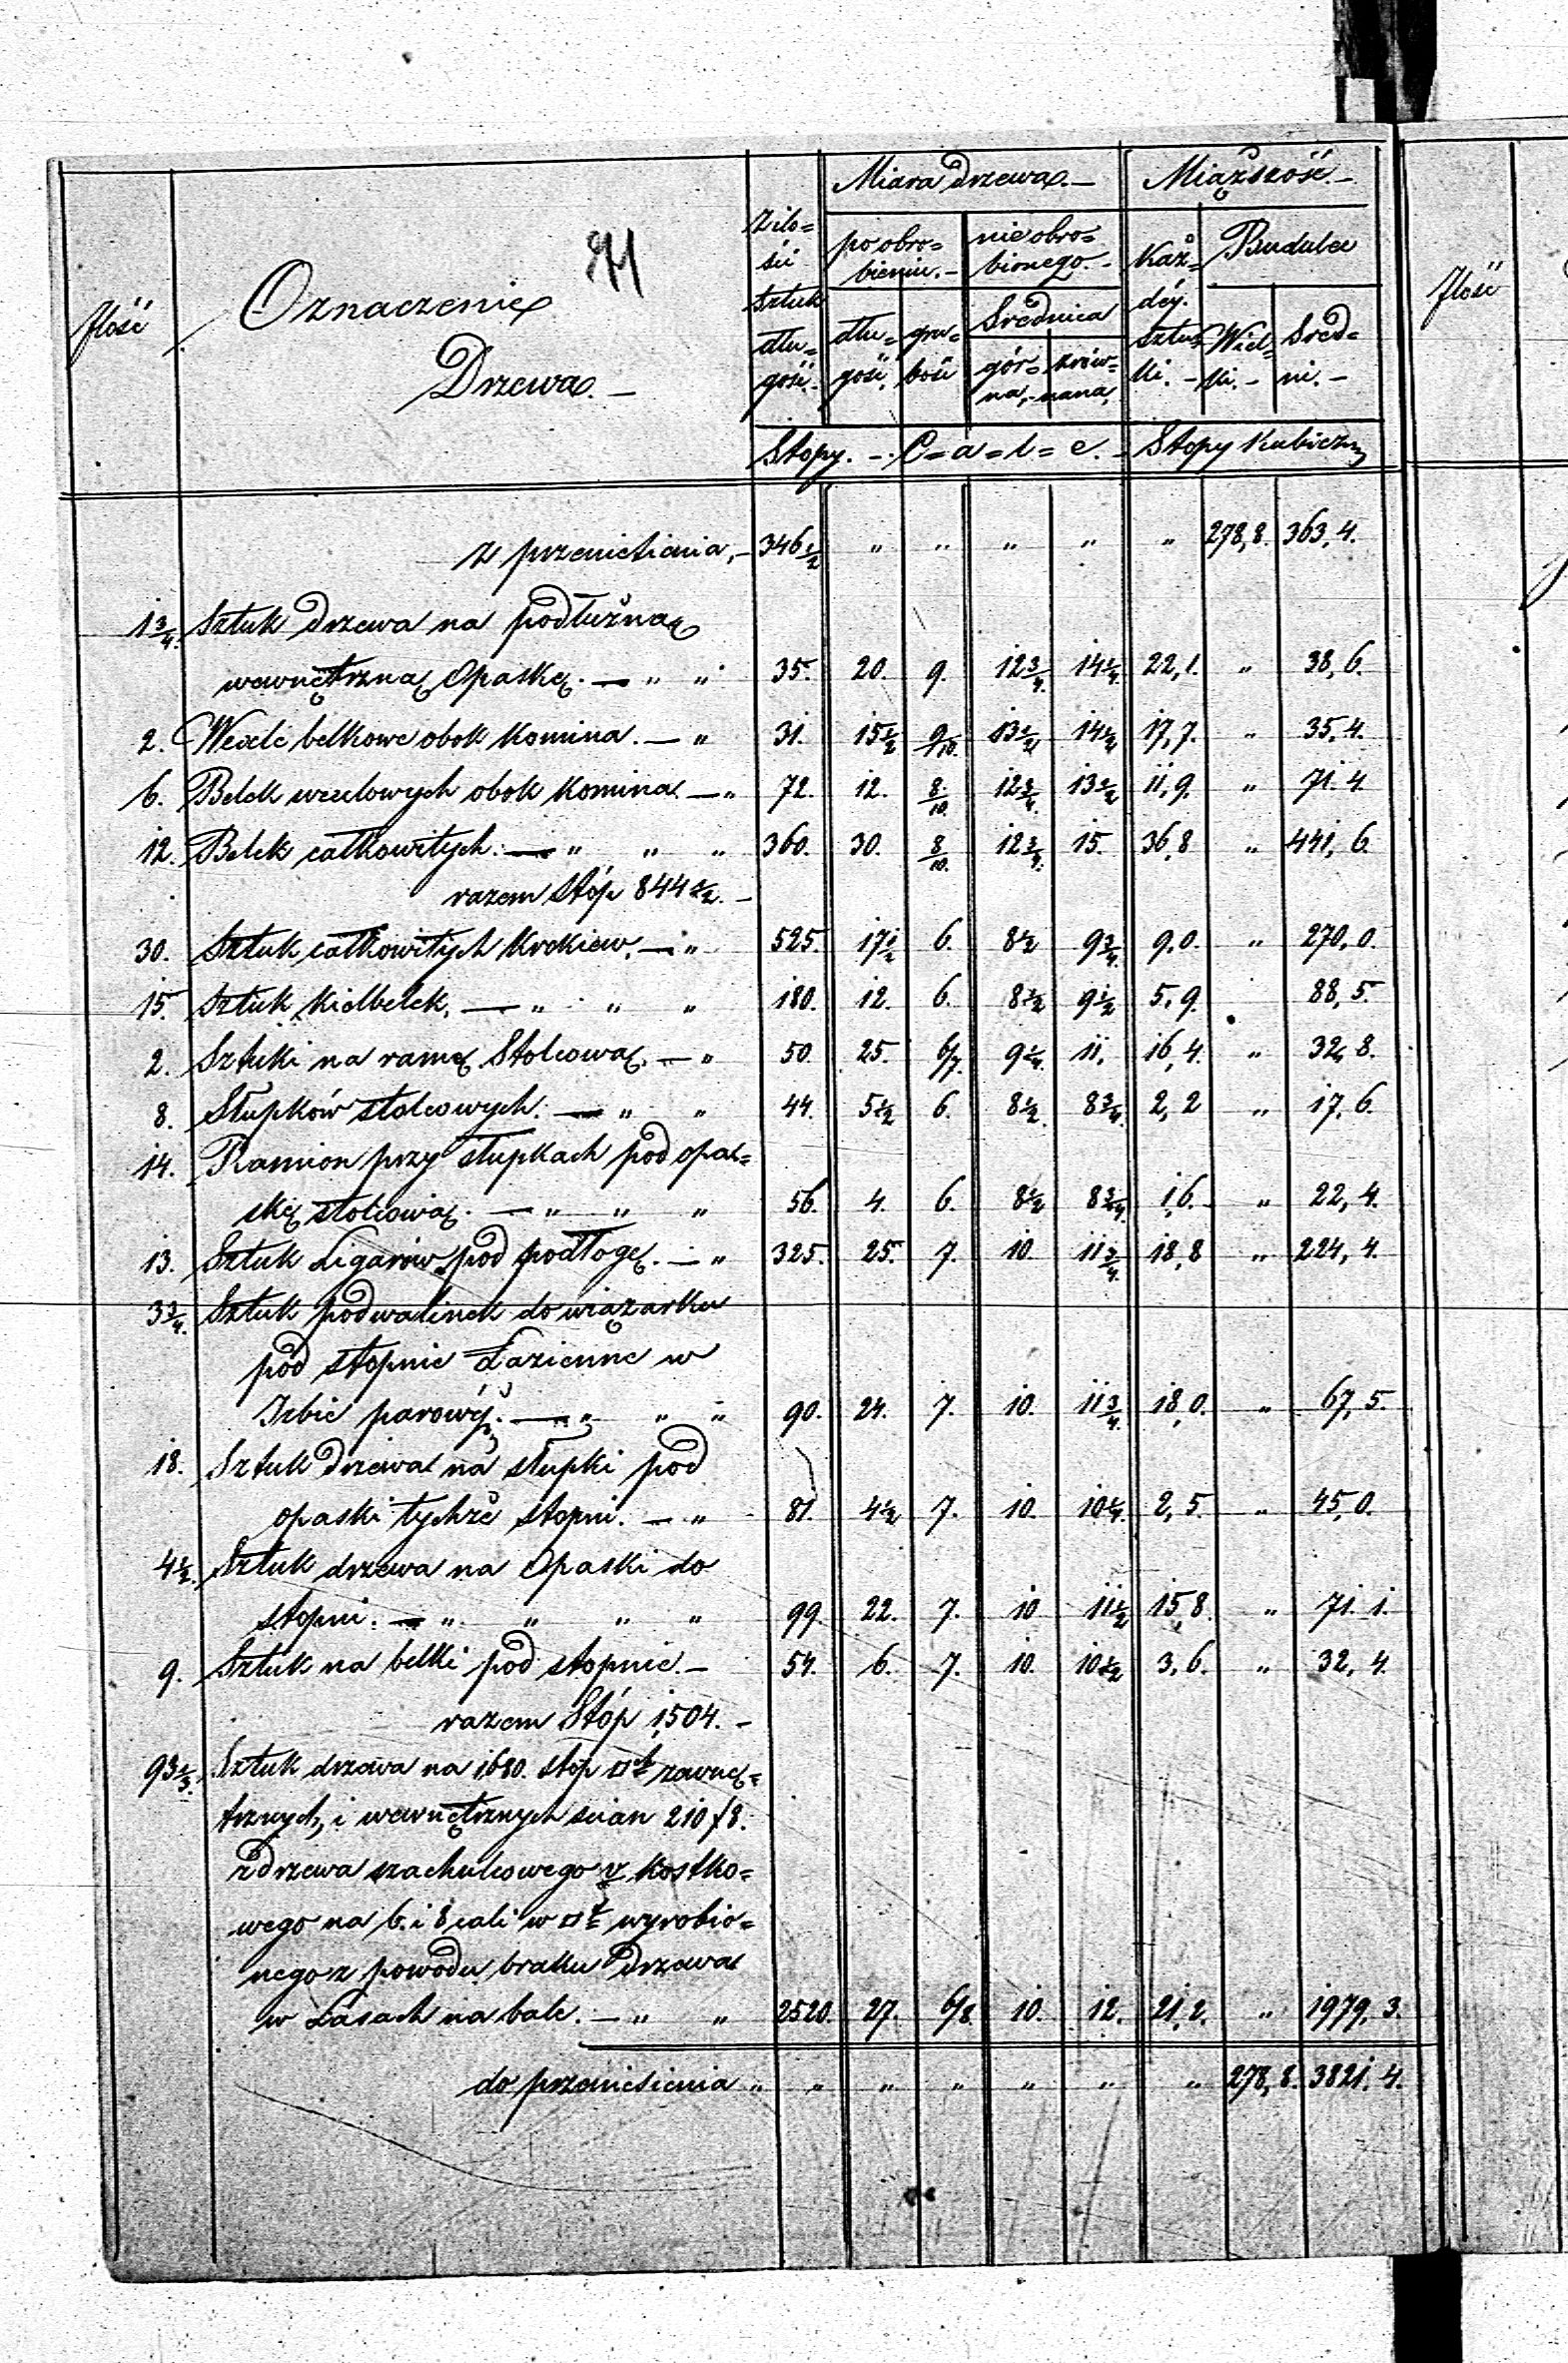 71
Ilość
Oznaczenie
Drzewa. —
Z ilo=
ści
sztuk
dłu=
gość.
Miara drzewa. —
po obro=
bieniu. —
dłu=
gość.
gru=
bość
nie obro=
bionego. —
Srednica
gór=
na, —
zrów=
nana,
Miąższość. —
Każ=
déy.
sztu=
ki. —
Budulec
Wiel=
ki. —
Sred=
ni. —
Stopy. — C=a=l=e. — Stopy kubiczn
Ilość
z przeniesienia, — 346 1/2 „ „ „ „ „ 278,8. 363,4.
1 3/4. Sztuk drzewa na podłużną
wewnętrzną Opaskę. — „ „ 35. 20. 9. 12 3/4. 14 1/4. 22,1. „ 38,6.
2. Wexle belkowe obok Komina. — „ 31. 15 1/2 9/10. 13 1/2 14 1/2 17,7. „ 35,4.
6. Belek wexlowych obok Komina — „ 72. 12. 8/10. 12 3/4. 13 1/2 11,9. „ 71.4.
12. Belek całkowitych. — „ „ „ 360. 30. 8/10. 12 3/4. 15. 36,8 „ 441,6.
razem Stóp 844 1/2. —
30. Sztuk całkowitych Krokiew. — „ 525. 17 1/2 6. 8 1/2 9 3/4. 9.0. „ 270,0.
15. Sztuk Kielbelek, — „ „ „ 180. 12. 6. 8 1/2 9 1/2 5,9. 88,5.
2. Sztuki na ramę Stolcową. — „ 50. 25. 6/7. 9 1/4. 11. 16,4. „ 32,8.
8. Słupków stolcowych. — „ „ 44. 5 1/2 6. 8 1/2. 8 3/4. 2,2 „ 17,6.
14. Ramion przy słupkach pod opa=
skę stolcową. — „ „ „ 56. 4. 6. 8 1/2 8 3/4. 1,6. „ 22,4.
13. Sztuk Ligarów pod podłogę. — „ 325. 25. 7. 10. 11 3/4. 18,8 „ 224,4.
3 3/4. Sztuk podwalinek do wiązarku
pod stopnie Łazienne w
Izbie parowéj. — „ „ „ 90. 24. 7. 10. 11 3/4. 18,0. „ 67,5.
18. Sztuk drzewa na słupki pod
opaski tychże stopni. — „ 81. 4 1/2 7. 10. 10 1/4. 2,5. „ 45,0.
4 1/2. Sztuk drzewa na Opaski do
stopni. — „ „ „ „ 99. 22. 7. 10. 11 1/2 15,8. „ 71.1.
9. Sztuk na belki pod stopnie. — 54. 6. 7. 10. 10 1/2 3,6. „ 32,4.
razem Stóp 1,504. —
93 1/3. Sztuk drzewa na 1680. stóp zewnę=
trznych, i wewnętrznych scian 210/8.
z drzewa szachulcowego v. kostko=
wego na 6. i 8 cali w wyrobio=
nego z powodu braku drzewa
w Lasach na bale. — „ „ 2520. 27. 6/8. 10. 12. 21,2. „ 1979,3.
do przeniesienia „ „ „ „ „ „ „ 278,8. 3821.4.